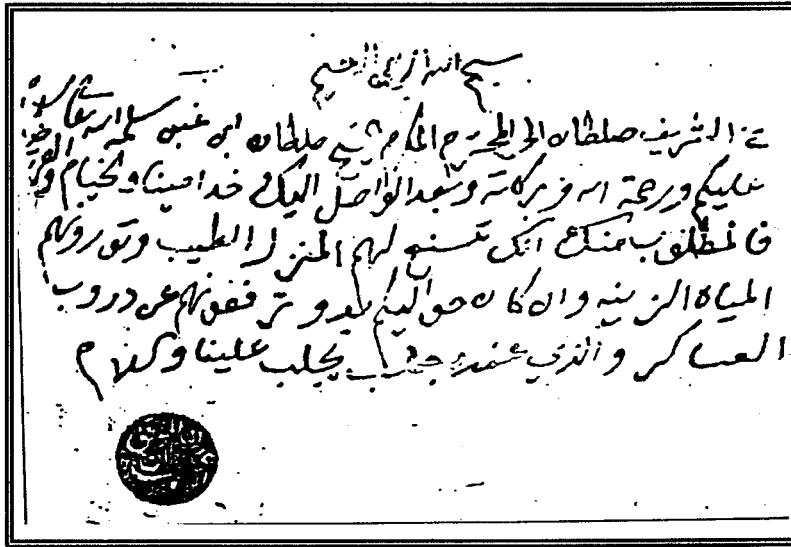 بسم الله الرحمن الرحيم
من الشريف صلطان الى المحترم المكرم شيخ صلطان ابن غبن سلمه الله تعالى
عليكم ورحمة الله وبركاته وبعد الواصل اليكم خدامينا والخيام
فالمطلوب منك انك تسنع لهم المنزل الطيب وتورونهم
المياه الزينه وان كان حواليكم بدو ترفقونهم عن دروب
العساكر والذي عنده جلب يجلب علينا والسلام